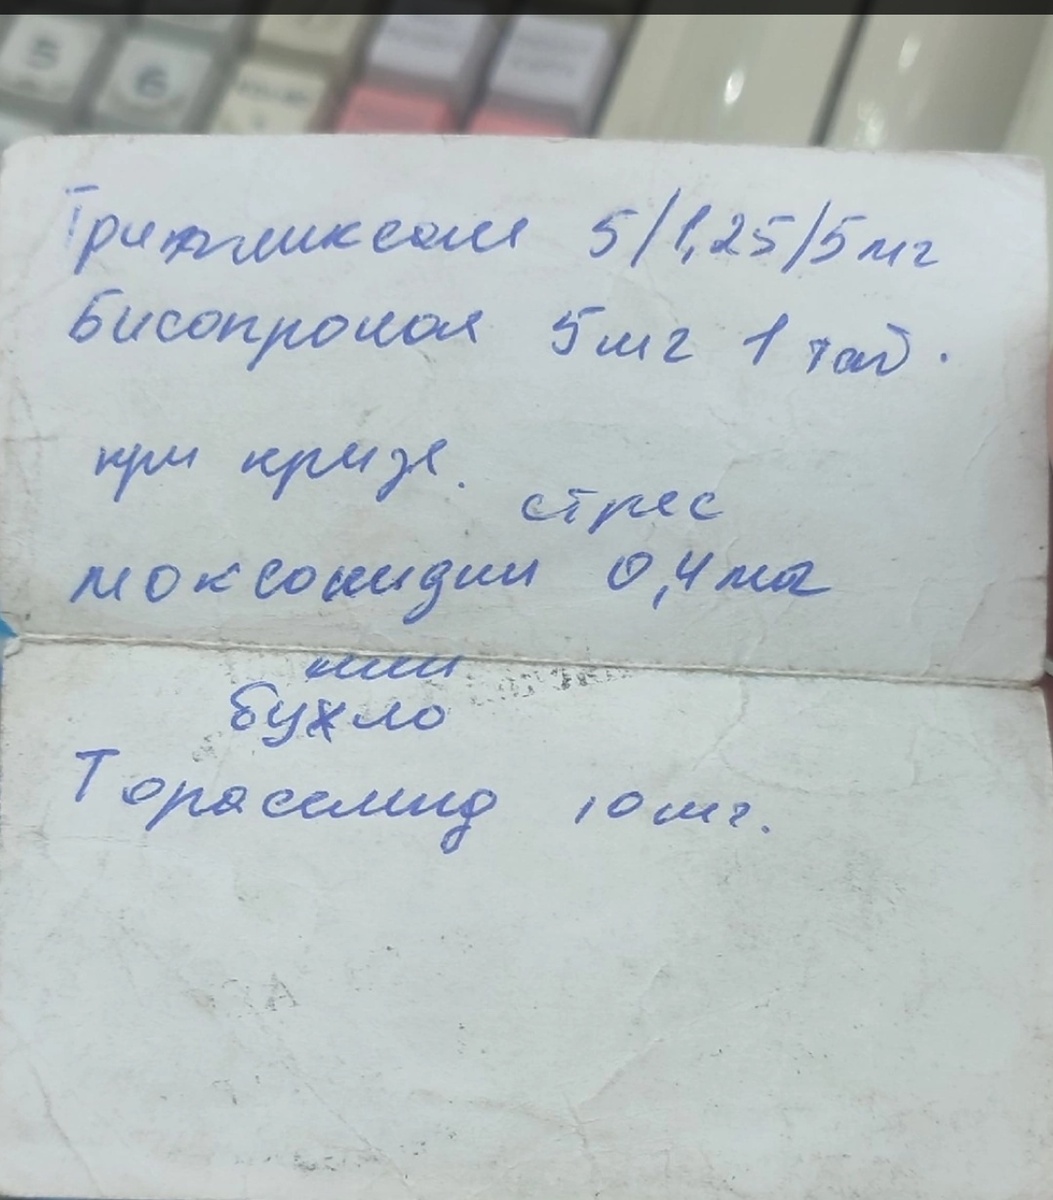 5
6
Трипликсам 5/1,25/5мг
Бисопролол 5мг 1 таб.
при кризе.
стрес
моксонидин 0,4 мг
или
бухло
Торасемид 10 мг.